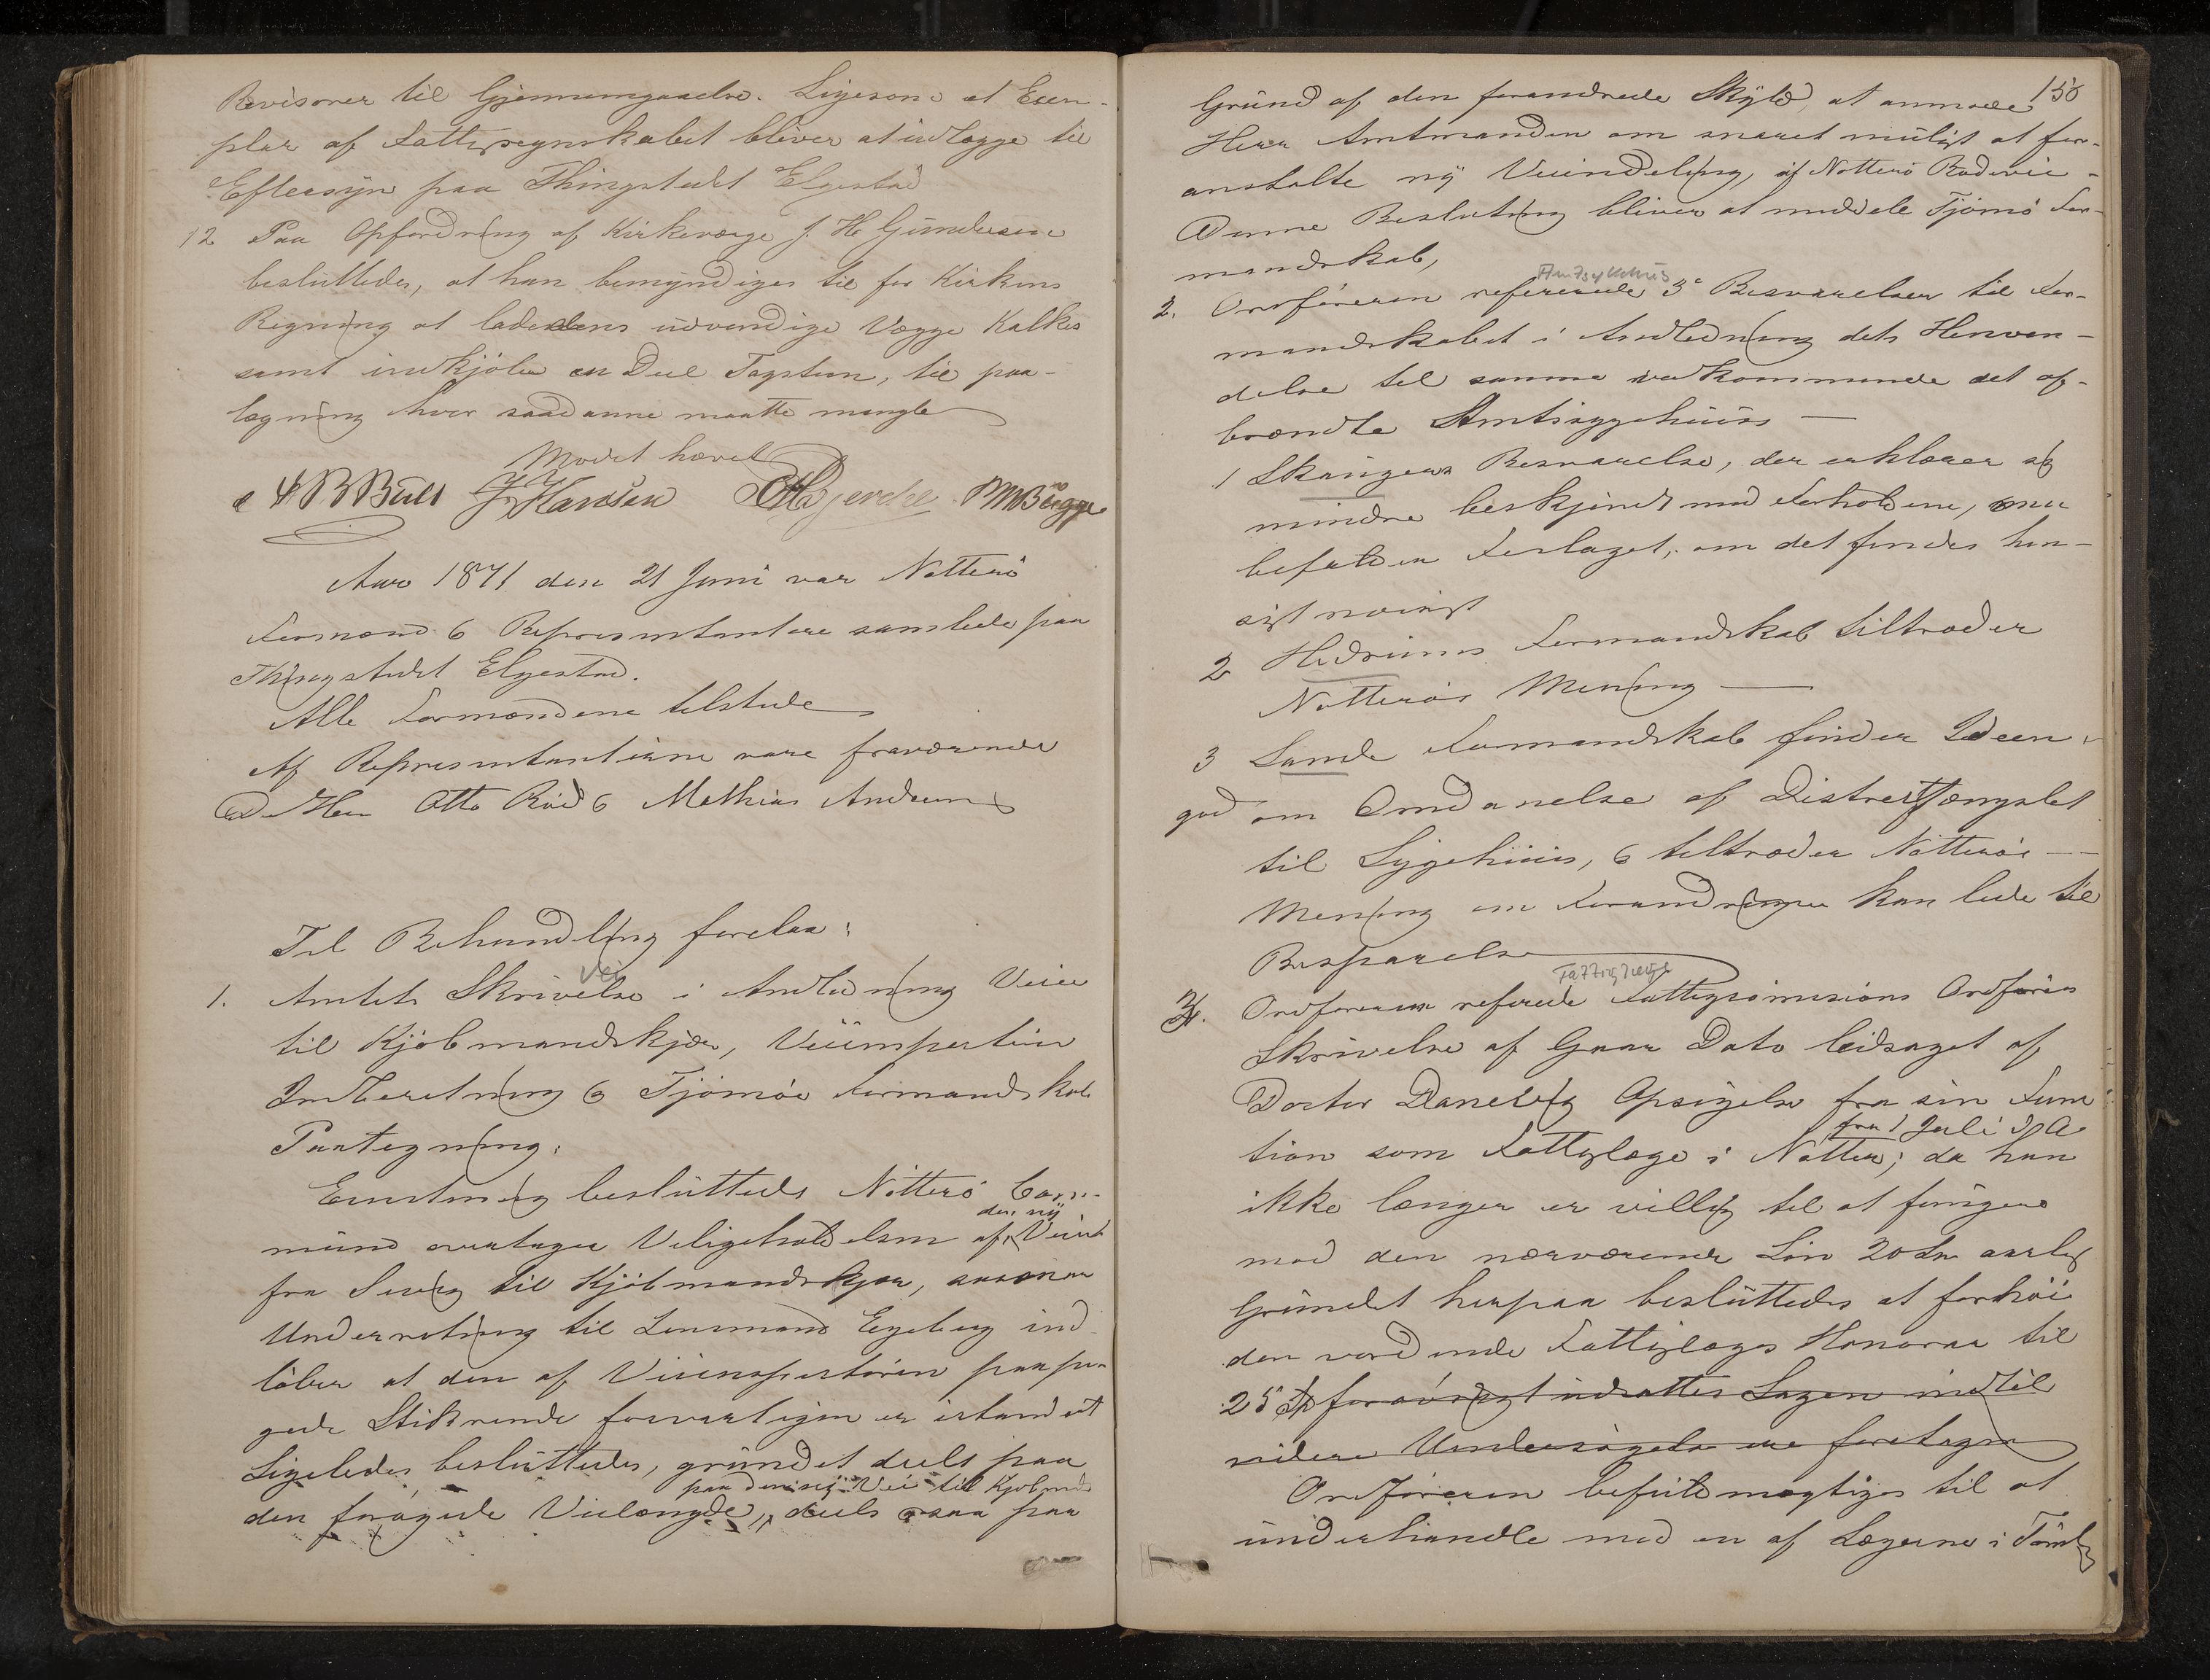 Revisorer til Gjennemgaaelse. Ligesom et Exem-
plar af Fattigregnskabet bliver at indlægge til
Eftersyn paa Thingstedet Elgestad
12 Paa Opfordring af Kirkeværge J. H. Gundersen
besluttedes, at han bemyndiges til for Kirkens
Regning at lade dens udvendige Vægge Kalkes
samt indkjøbe en Deel Tagsteen, til paa-
lægning hvor saadanne maatte mangle
Mødet hævet
B Bull J Hansen M Bugge
Aar 1871 den 21 Juni var Nøtterø
Formænd & Repræsentantere samlede paa
Thingstedet Elgestad.
Alle Formændene tilstede
Af Repræsentanterne vare fraværende
D'Hrr Otto Rød & Mathias Andersen
Til Behandling forelaa:
Vei
1. Amtets Skrivelse i Anledning Veien
til Kjøbmandskjær, Veiinspecteur
Indberetning & Tjømø Formandskabs
Paategning:
Eenstemmig besluttedes Nøtterø Com-
den ny
mune overtager Veligeholdelsen af Veien
fra til Kjøbmandskjær, saasnart
Underretning til Lensmand Engeberg ind
løber at den af Veiinspectøren paape-
gede Stikrende forsvarligen er istandsat
Ligeledes besluttedes, grundet deels paa
paa den ny Vei til Kjøbmds
den forøgede Veilængde, deels ogsaa paa
156
Grund af den forandrede Skyld, at anmode
Herr Amtmanden om snarest muligt at for-
anstalte ny Veiinddeling, af Nøtterø Rodevei-
Denne Beslutning bliver at meddele Tjømø For-
mandskab,
Amtssykehus
2. Ordføreren refererede 3de Besvarelser til For-
mandskabet i Anledning dets Henven-
delse til samme vedkommende det af-
brændte Amtssygehuus
1 Skaugers Besvarelse, der erklærer sig
mindre beskjendt med Forholdene, men
befalder Forslaget, om det findes hen-
sigtmæssigt
2 Hedrums Formandskab tiltræder
Nøtterøs Mening
3 Sande Formandskab finder Ideen
god om Omdanelse af Distrectfængslet
til Sygehuus, & tiltræder Nøtterøs
Mening om Forandringen kan lede til
Besparelse
Fattiglæge
3. Ordføreren referede Fattigcommissions Ordførers
Skrivelse af Gaars Dato ledsaget af
Doctor Danelsig Opsigelse fra sin Func
fra 1 Juli d A
tion som Fattiglæge i Nøtterø; da han
ikke længer er villig til at fungere
mod den nærværende Løn 20 Spd aarlig
Grundet herpaa besluttedes at forhøie
den vordende Fattiglæges Honorar til
25 Spd forøvrigt udsættes Sagen indtil
videre Undersøgelse ere foretagne
Ordføreren befuldmægtiges til at
underhandle med en af Lægerne i Tønsbg